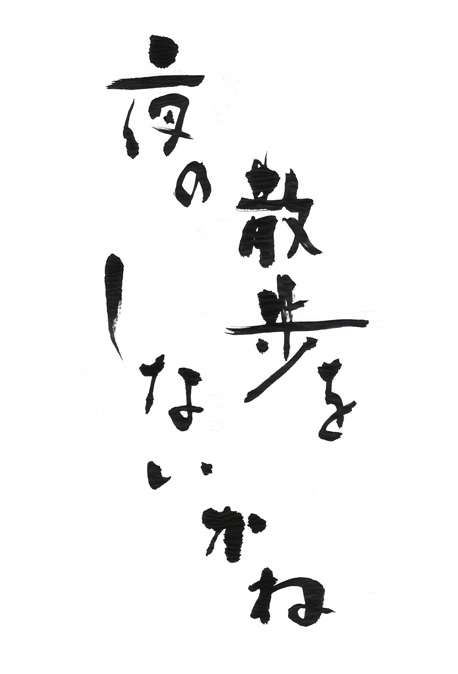 夜の
散歩を
しないかね